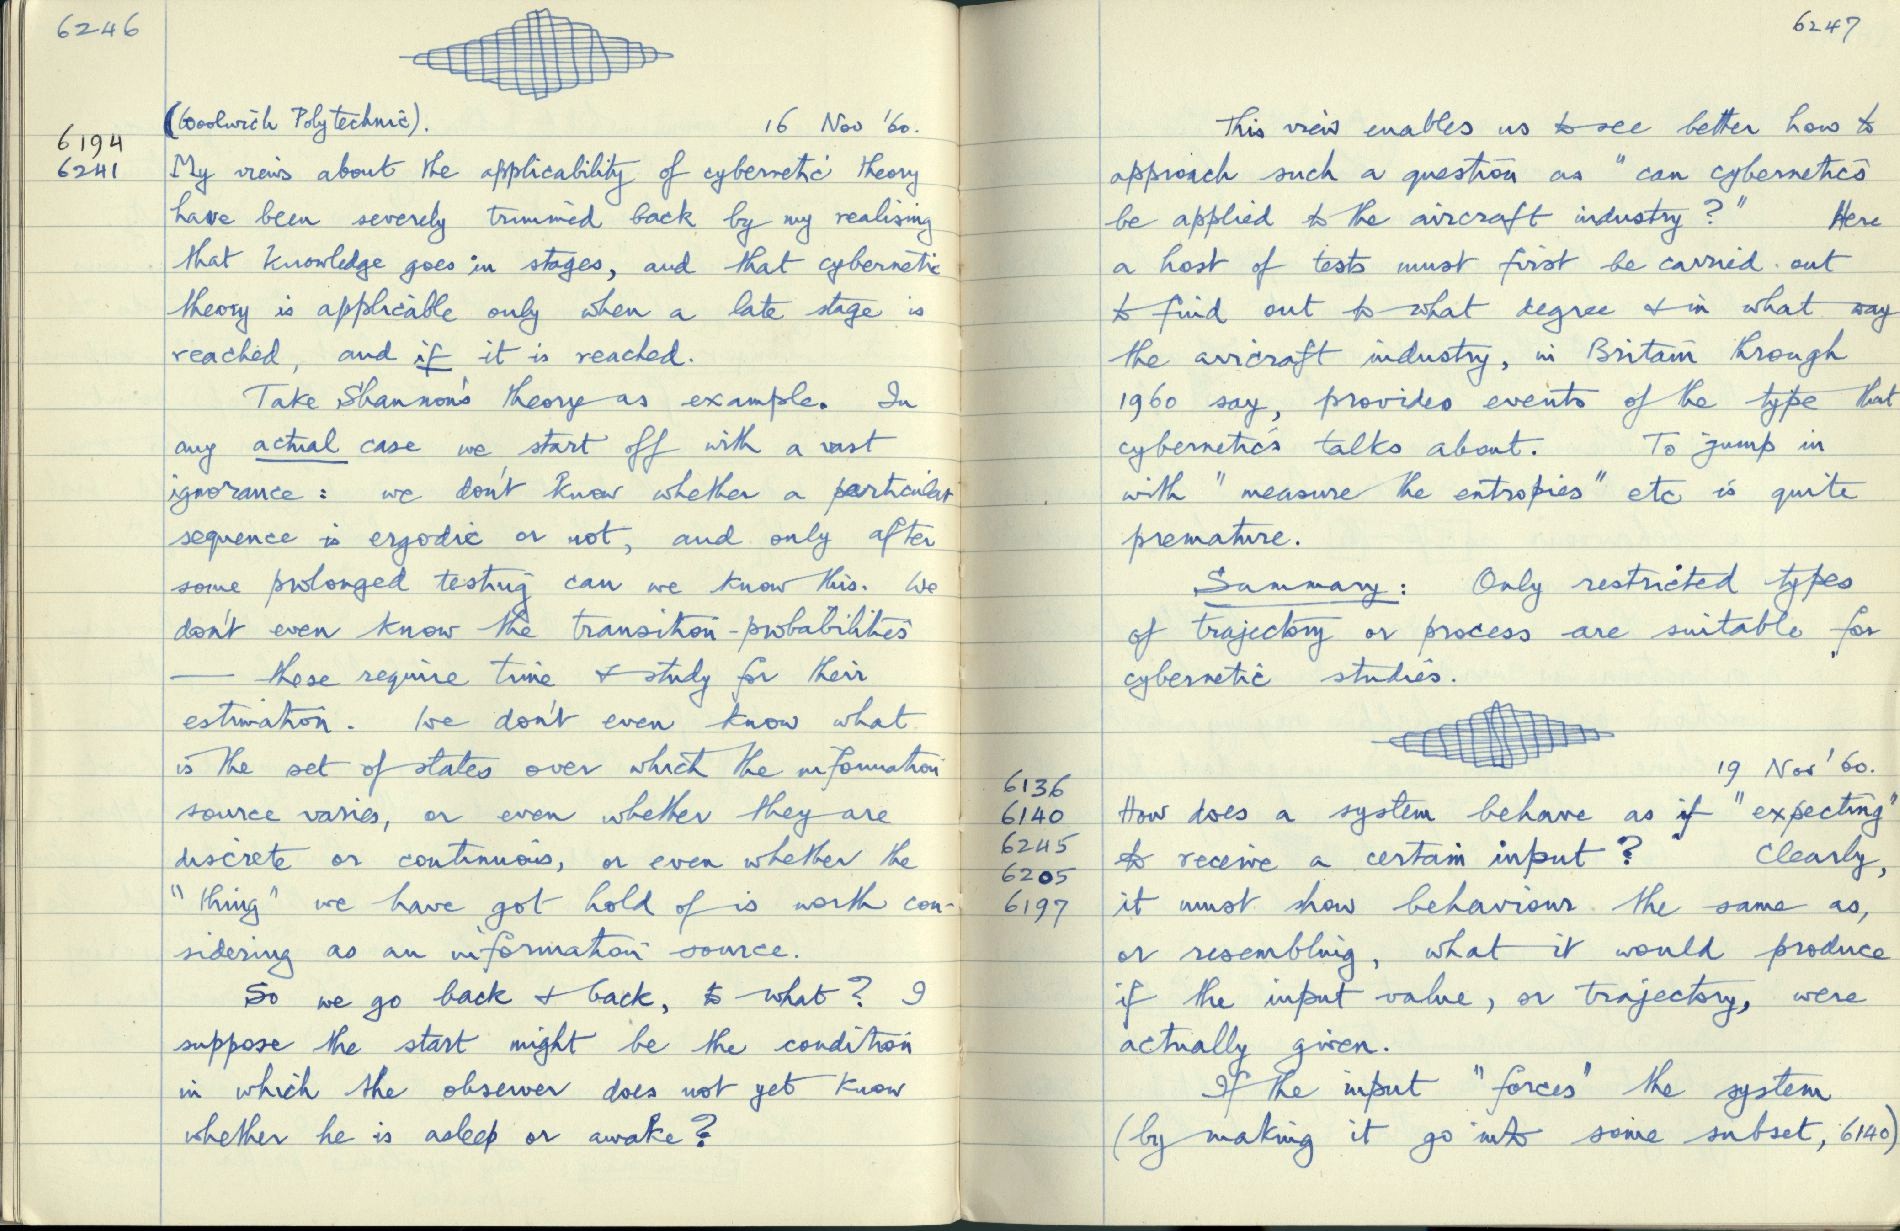 6246
(Woolwich Polytechnic). 16 Nov '60.
6194
6241
My views about the applicability of cybernetic theory
have been severely trimmed back by my realising
that knowledge goes in stages, and that cybernetic
theory is applicable only when a late stage is
reached, and if it is reached.
Take Shannon's theory as example. In
any actual case we start off with a vast
ignorance: we don't know whether a particular
sequence is ergodic or not, and only after
some prolonged testing can we know this. We
don't even know the transition-probabilities
— these require time & study for their
estimation. We don't even know what
is the set of states over which the information
source varies, or even whether they are
discrete or continuous, or even whether the
"thing" we have got hold of is worth con-
sidering as an information source.
So we go back & back, to what? I
suppose the start might be the condition
in which the observer does not yet know
whether he is asleep or awake?
6247
This view enables us to see better how to
approach such a question as "can cybernetics
be applied to the aircraft industry?" Here
a host of tests must first be carried out
to find out to what degree & in what way
the aircraft industry, in Britain through
1960 say, provides events of the type that
cybernetics talks about. To jump in
with "measure the entropies" etc is quite
premature.
Summary: Only restricted types
of trajectory or process are suitable for
cybernetic studies.
19 Nov '60.
6136
6140
6245
6205
6197
How does a system behave as if "expecting"
to receive a certain input? Clearly,
it must show behaviour the same as,
or resembling, what it would produce
if the input value, or trajectory, were
actually given.
If the input "forces" the system
(by making it go into some subset, 6140)